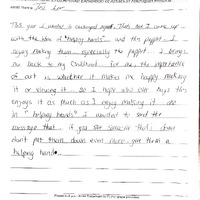 This year I wanted to challenged myself. That's how I came up
with the idea of "helping hands" and this puppet. I
enjoy making them, especially the puppet. It brings
me back to my childhood. For me, the importance
of art is whether it makes me happy making
it or viewing it. So I hope who ever buys this
enjoys it as much as I enjoy making it.
In "helping hands" I wanted to send the
message that if you see someone that's down
don't put them down even more, give them a
helping hand.